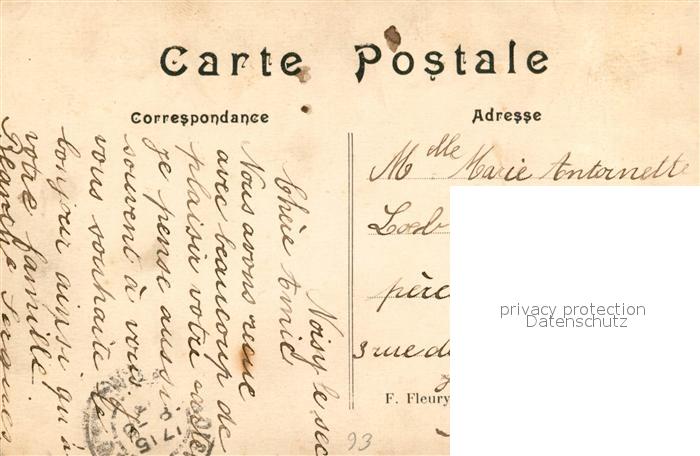 Carte Postale
Correspondance
Adresse
Noisy le sec
Chère Amie
Nous avons reçue
avec beaucoup de
plaisir votre carte
Je pense aussi
souvent à vous. Je
vous souhaite le
bonjour ainsi qu'à
votre famille.
Mlle Marie Antoinette
Loeb
père
3 rue de
F. Fleury
93
1715
privacy protection
Datenschutz